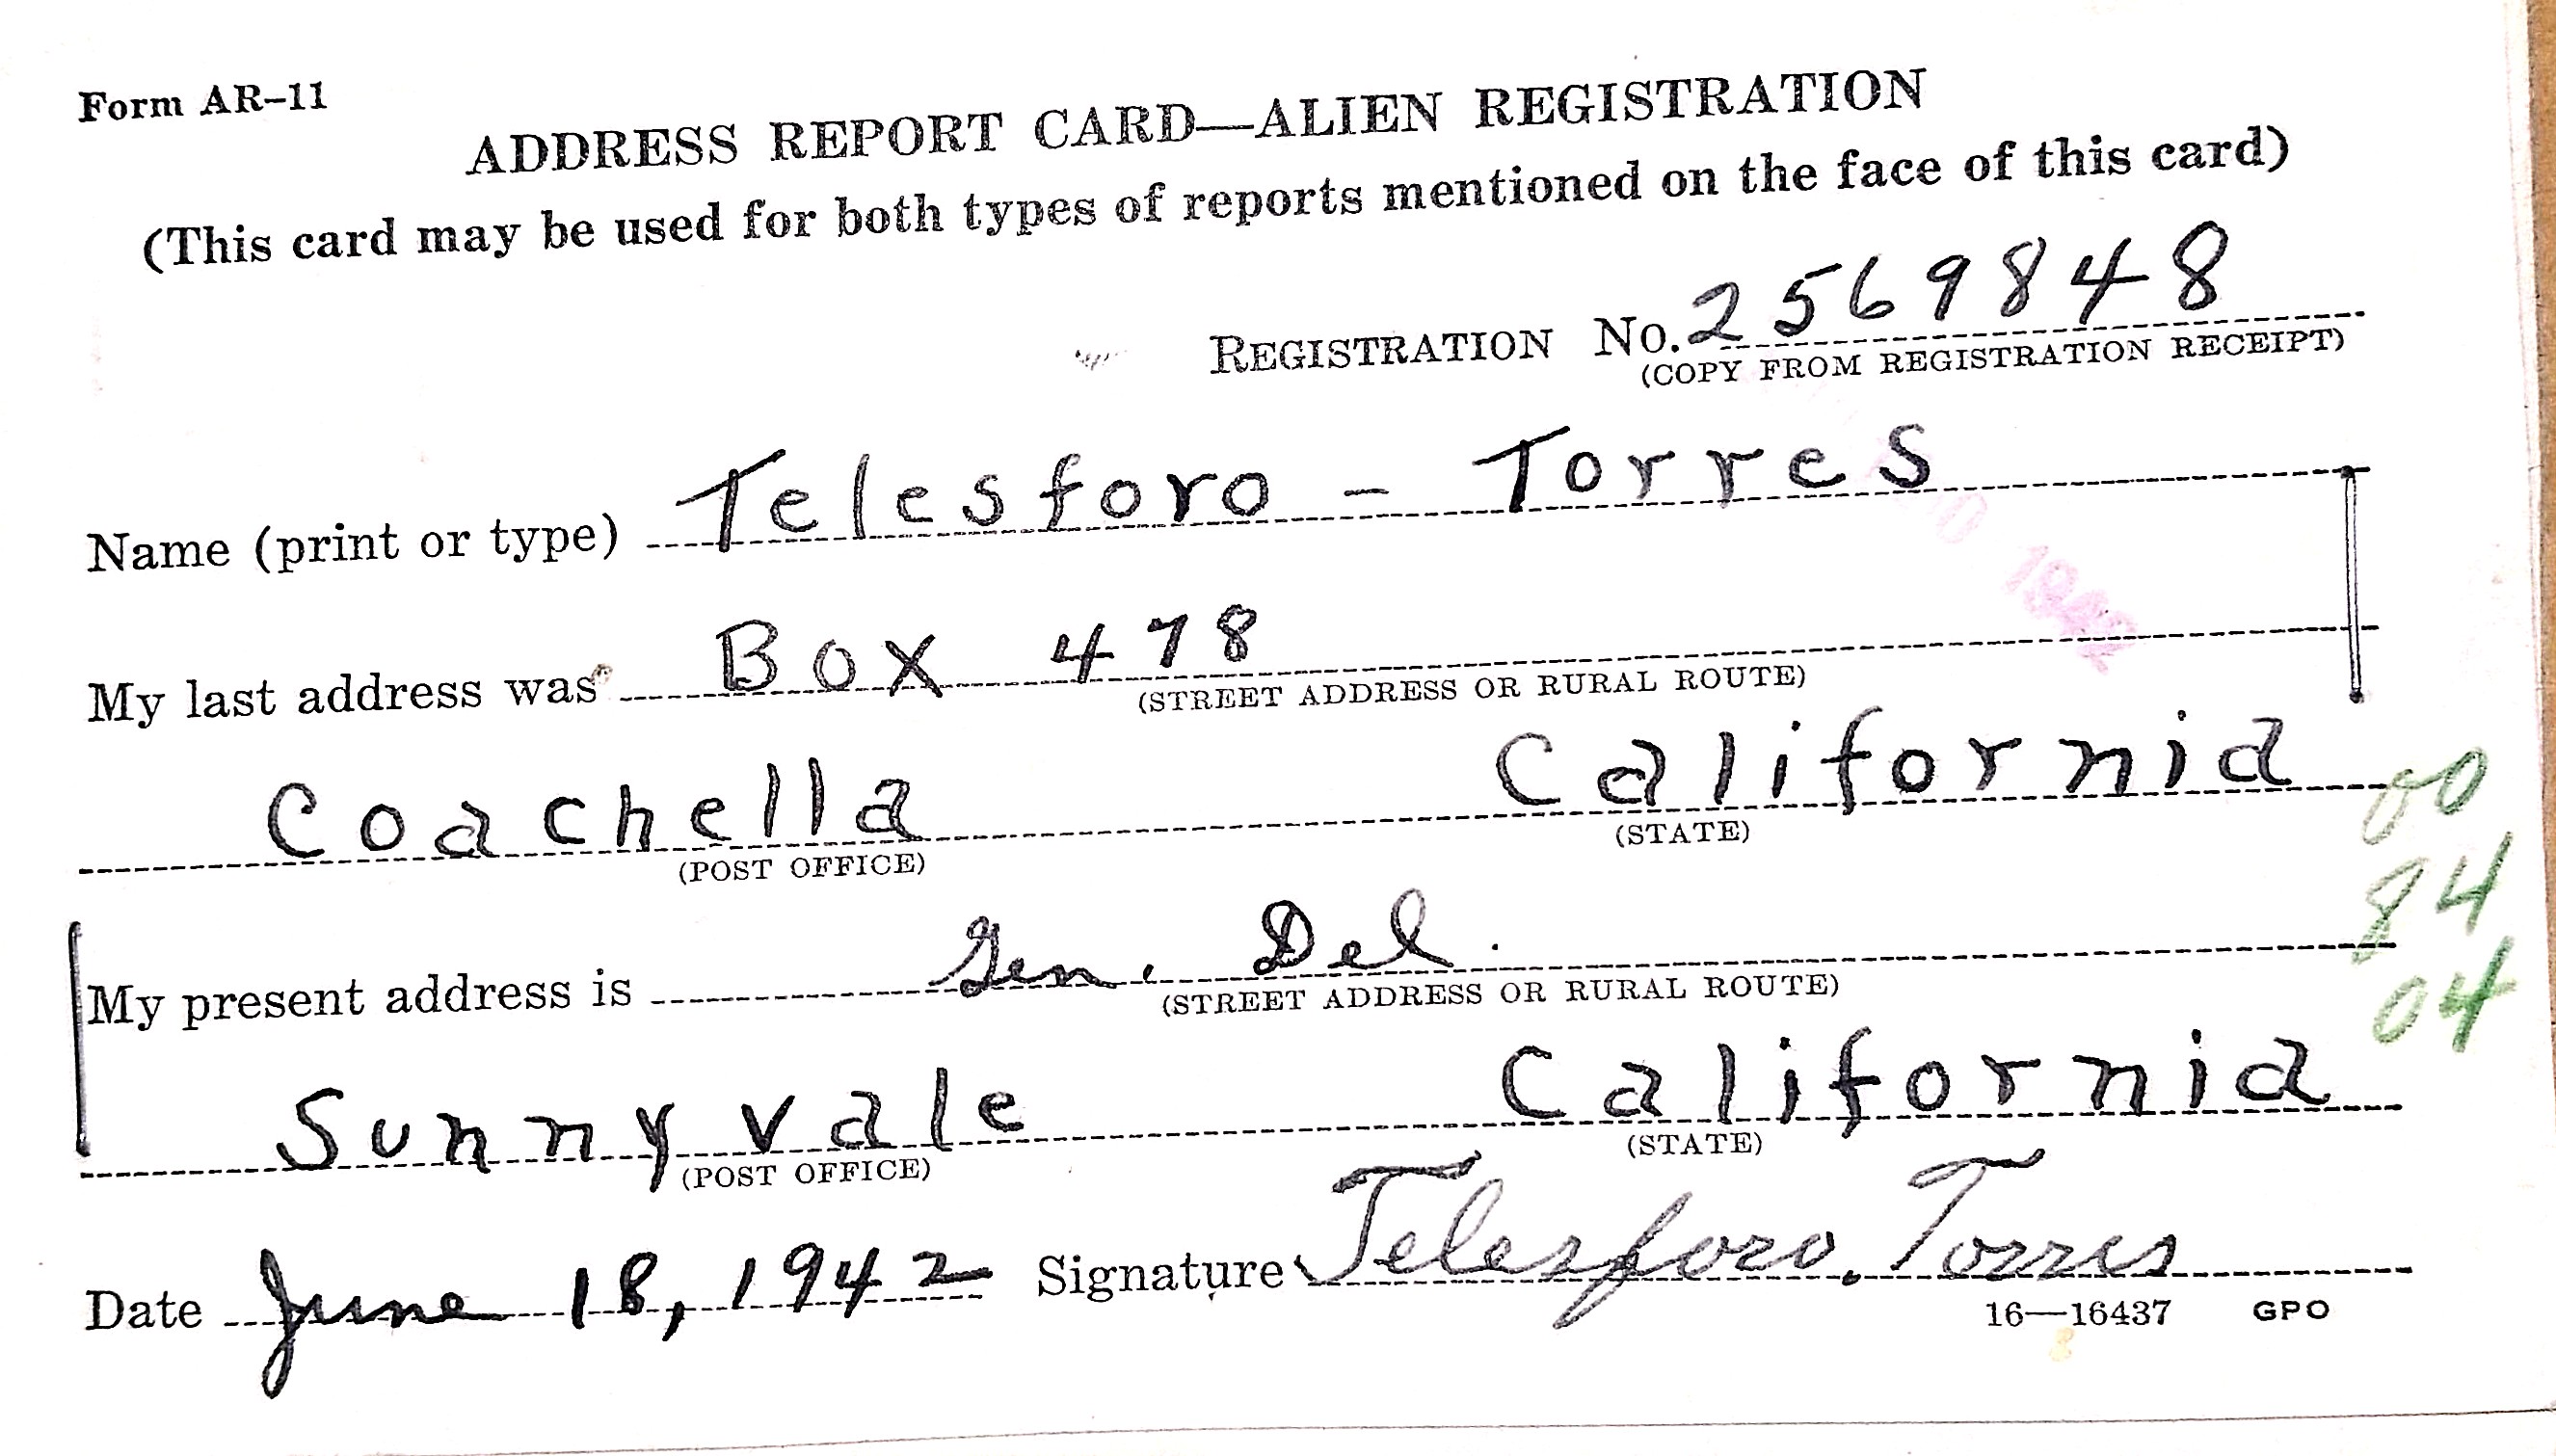 Form AR–11
ADDRESS REPORT CARD—ALIEN REGISTRATION
(This card may be used for both types of reports mentioned on the face of this card)
REGISTRATION No. 2569848
(COPY FROM REGISTRATION RECEIPT)
Name (print or type) Telesforo - Torres
1942
My last address was Box 478
(STREET ADDRESS OR RURAL ROUTE)
Coachella California
(POST OFFICE) (STATE)
00
84
04
My present address is Gen. Del.
(STREET ADDRESS OR RURAL ROUTE)
Sunnyvale California
(POST OFFICE) (STATE)
Date June 18, 1942 Signature Telesforo. Torres
16—16437 GPO